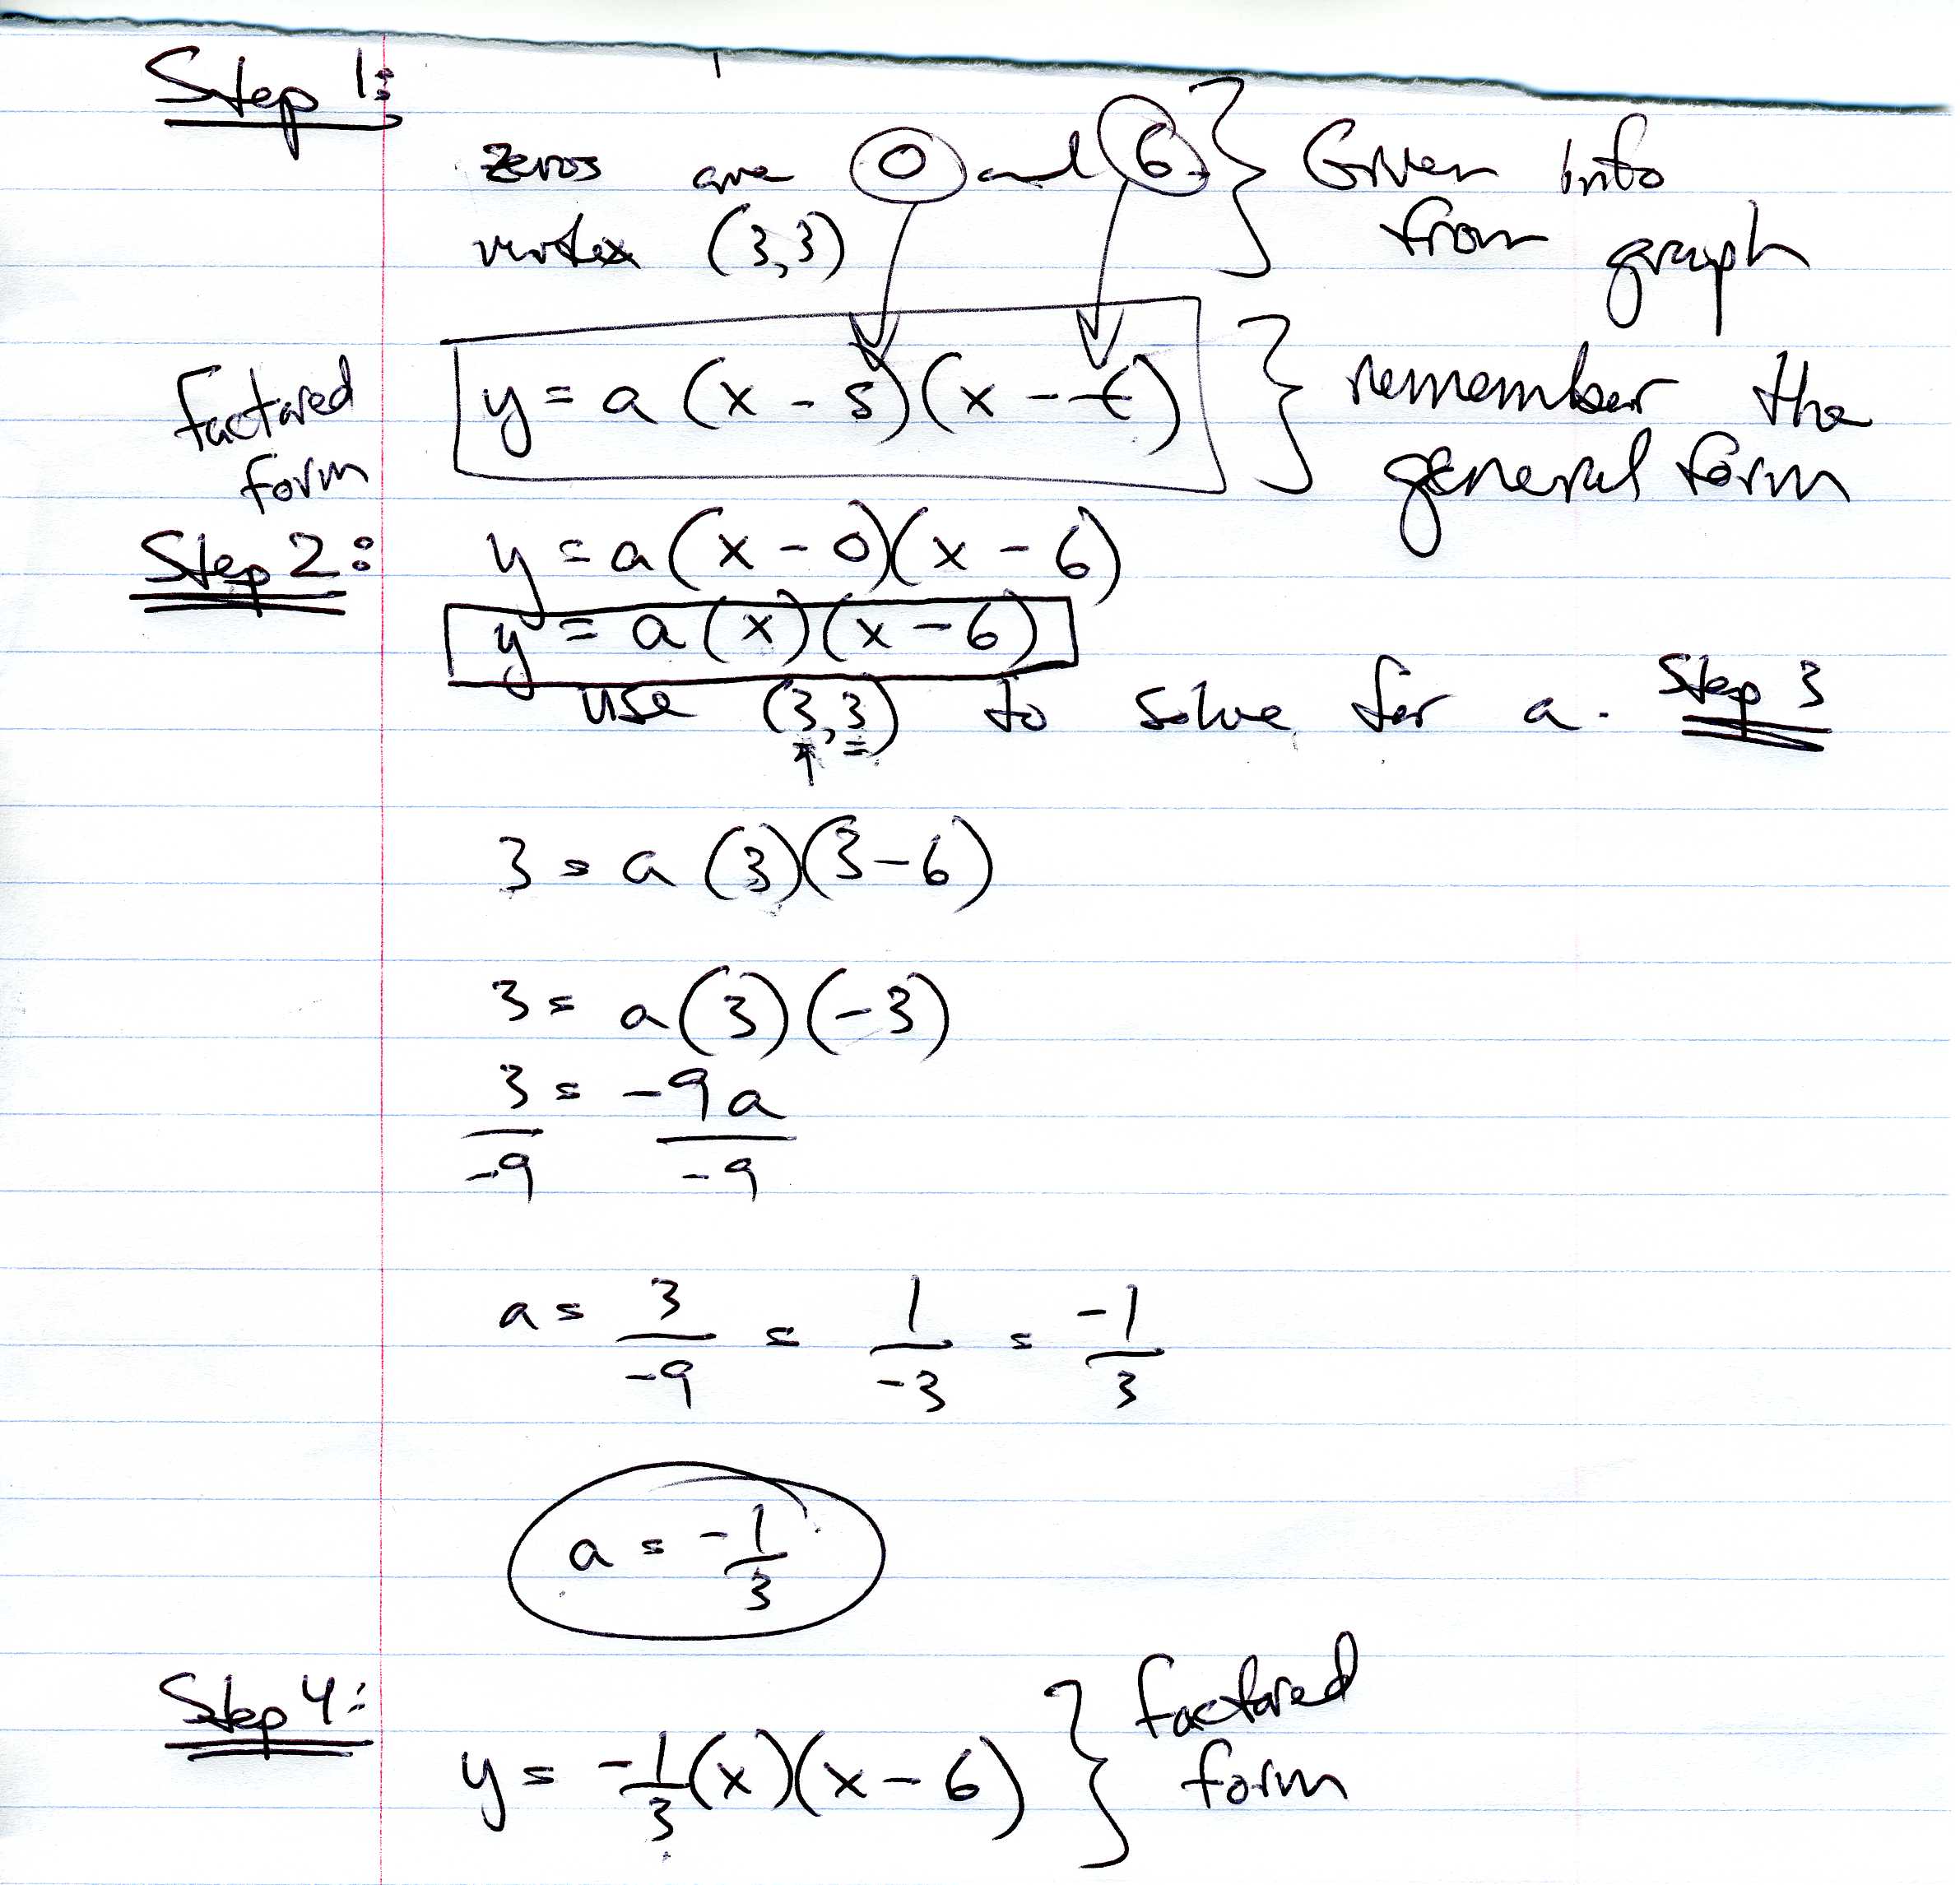 Step 1:
zeros are 0 and 6 } Given info
vertex (3,3) from graph
Factored form y = a(x - s)(x - t) } remember the general form
Step 2: y = a(x - 0)(x - 6)
y = a(x)(x - 6)
use (3,3) to solve for a. Step 3
3 = a(3)(3-6)
3 = a(3)(-3)
3 = -9a
-9 -9
a = 3/-9 = 1/-3 = -1/3
a = -1/3
Step 4:
y = -1/3(x)(x - 6) } factored form